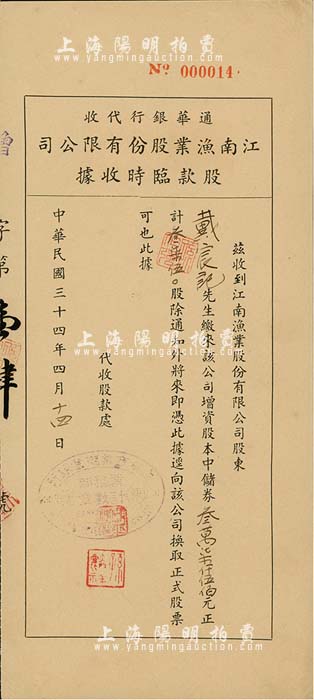 上海陽明拍賣
www.yangmingauction.com
No 000014
收代行銀華通
司公限有份股業漁南江
據收時臨款股
茲收到江南漁業股份有限公司股東
戴宸記先生繳來該公司增資股本中儲券叁萬柒仟伍佰元正
計叁柒伍〇股除通知外將來即憑此據逕向該公司換取正式股票
可也此據
代收股款處
中華民國三十四年四月十四日
增
字第
壹肆
號
上海陽明拍賣
www.yangmingauction.com
上海陽明拍賣
www.yangmingauction.com